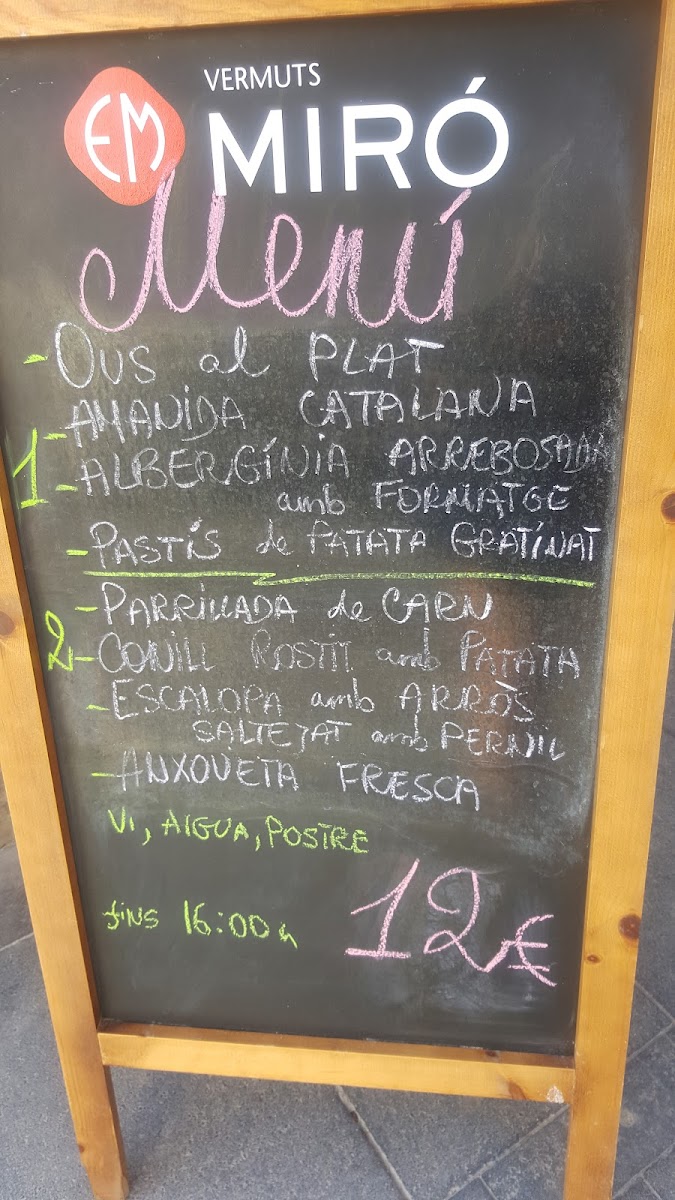 EM
VERMUTS
MIRÓ
Menú
- OUS al PLAT
- AMANIDA CATALANA
1 - ALBERGÍNIA ARREBOSADA
amb FORMATGE
- PASTÍS de PATATA GRATINAT
- PARRILLADA de CARN
2 - CONILL ROSTIT amb PATATA
- ESCALOPA amb ARRÒS
SALTEJAT amb PERNIL
- ANXOVETA FRESCA
VI, AIGUA, POSTRE
fins 16:00h
12€